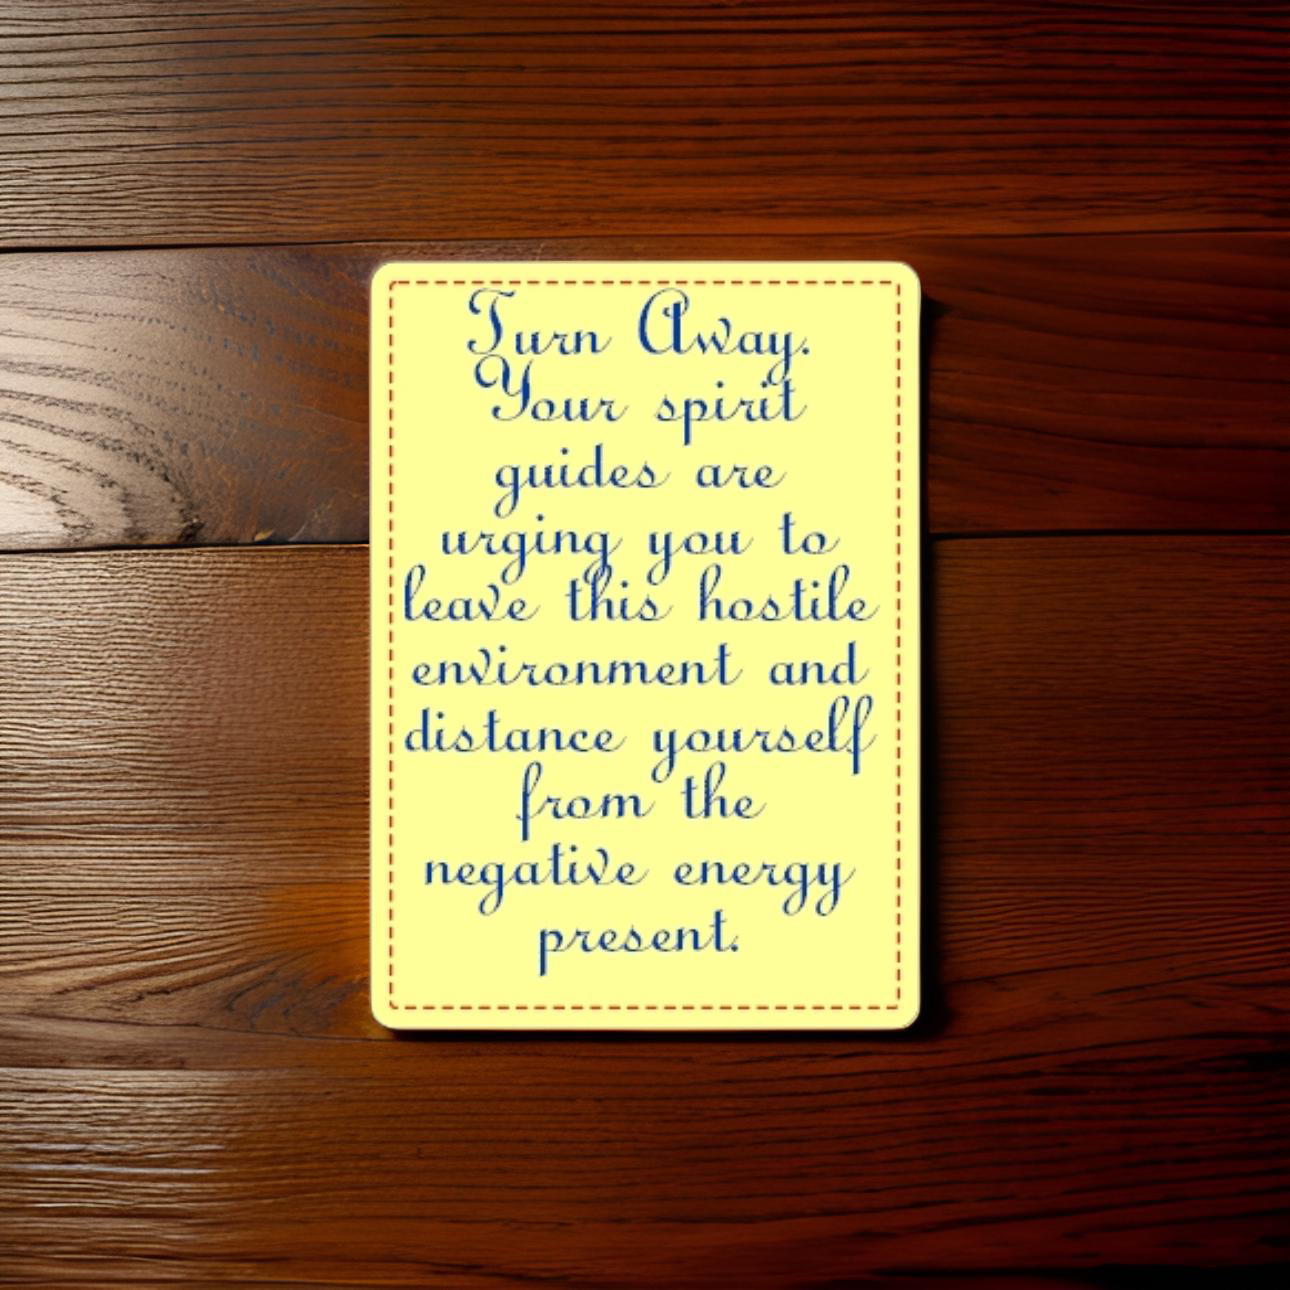 Turn Away.
Your spirit
guides are
urging you to
leave this hostile
environment and
distance yourself
from the
negative energy
present.